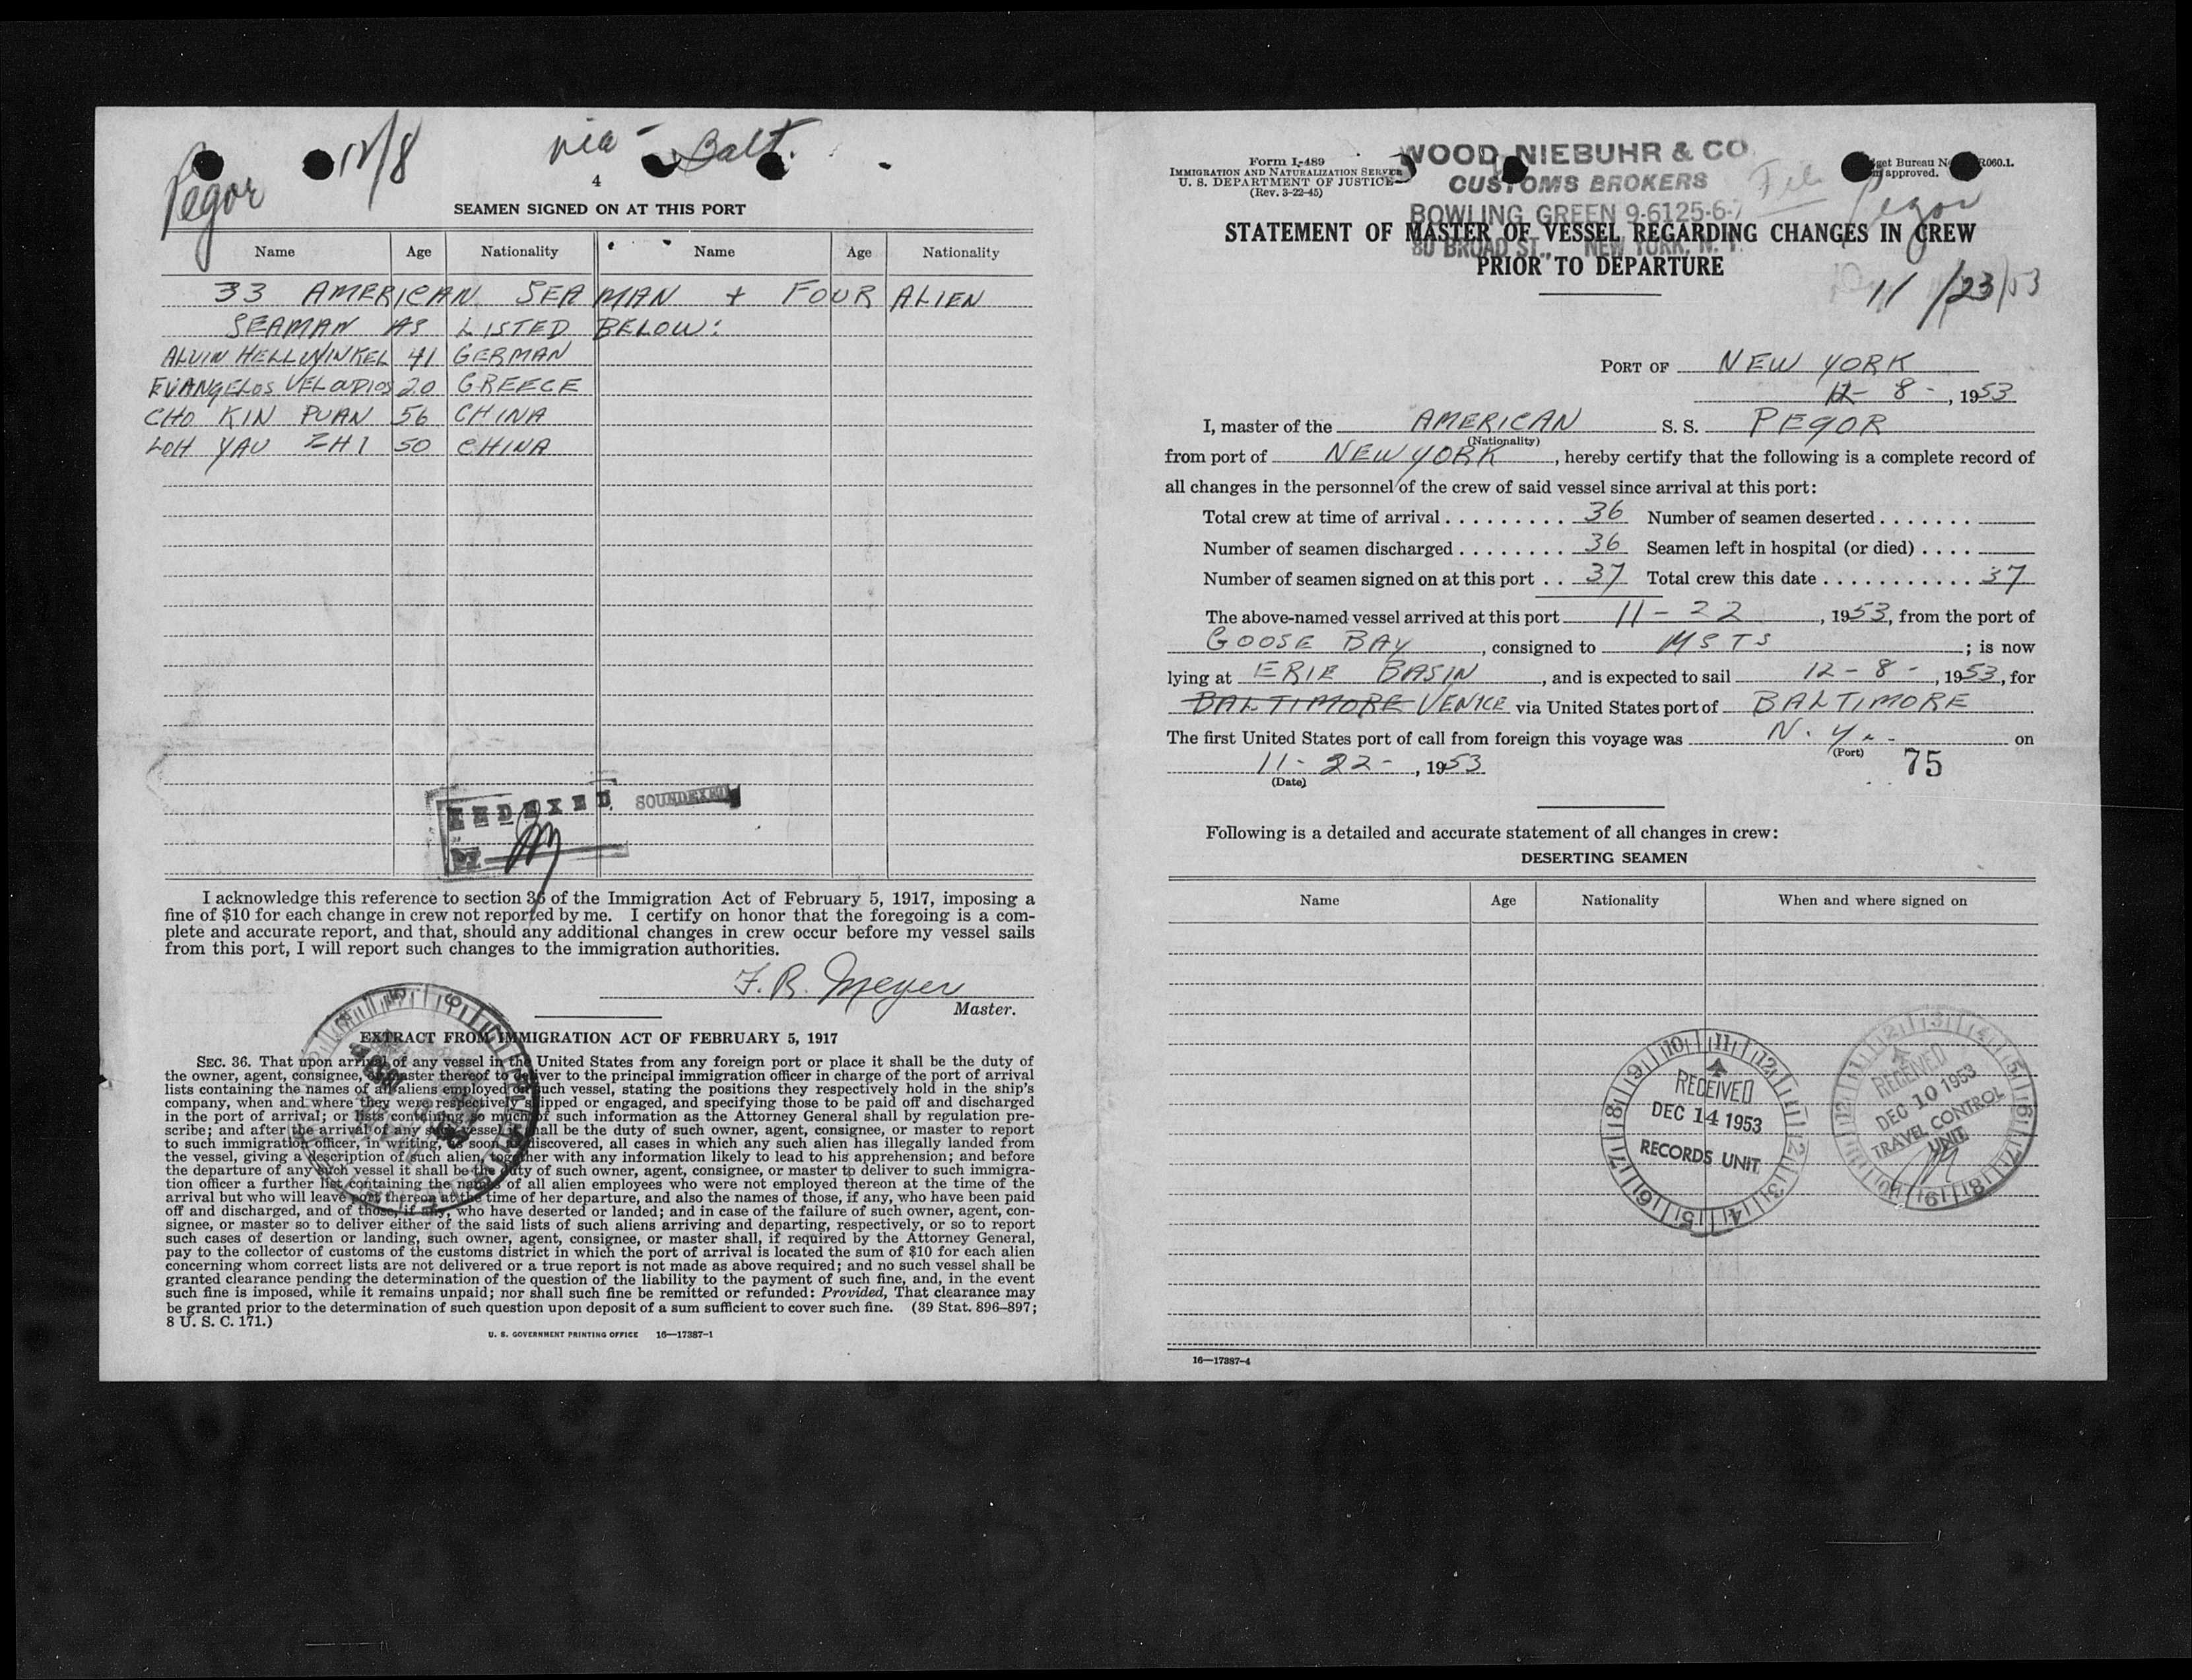 Pegor 12/8 via - Balt.
4
SEAMEN SIGNED ON AT THIS PORT
Name Age Nationality Name Age Nationality
33 AMERICAN SEAMAN + FOUR ALIEN
SEAMAN AS LISTED BELOW:
ALVIN HELLWINKEL 41 GERMAN
EVANGELOS VELOUDIOS 20 GREECE
CHO KIN PUAN 56 CHINA
LOH YAU ZHI 50 CHINA
SOUNDEXED
BY
I acknowledge this reference to section 36 of the Immigration Act of February 5, 1917, imposing a
fine of $10 for each change in crew not reported by me. I certify on honor that the foregoing is a com-
plete and accurate report, and that, should any additional changes in crew occur before my vessel sails
from this port, I will report such changes to the immigration authorities.
F. R. Meyer
Master.
EXTRACT FROM IMMIGRATION ACT OF FEBRUARY 5, 1917
SEC. 36. That upon arrival of any vessel in the United States from any foreign port or place it shall be the duty of
the owner, agent, consignee, or master thereof to deliver to the principal immigration officer in charge of the port of arrival
lists containing the names of all aliens employed on such vessel, stating the positions they respectively hold in the ship's
company, when and where they were respectively shipped or engaged, and specifying those to be paid off and discharged
in the port of arrival; or lists containing so much of such information as the Attorney General shall by regulation pre-
scribe; and after the arrival of any such vessel it shall be the duty of such owner, agent, consignee, or master to report
to such immigration officer, in writing, as soon as discovered, all cases in which any such alien has illegally landed from
the vessel, giving a description of such alien, together with any information likely to lead to his apprehension; and before
the departure of any such vessel it shall be the duty of such owner, agent, consignee, or master to deliver to such immigra-
tion officer a further list containing the names of all alien employees who were not employed thereon at the time of the
arrival but who will leave port thereon at the time of her departure, and also the names of those, if any, who have been paid
off and discharged, and of those, if any, who have deserted or landed; and in case of the failure of such owner, agent, con-
signee, or master so to deliver either of the said lists of such aliens arriving and departing, respectively, or so to report
such cases of desertion or landing, such owner, agent, consignee, or master shall, if required by the Attorney General,
pay to the collector of customs of the customs district in which the port of arrival is located the sum of $10 for each alien
concerning whom correct lists are not delivered or a true report is not made as above required; and no such vessel shall be
granted clearance pending the determination of the question of the liability to the payment of such fine, and, in the event
such fine is imposed, while it remains unpaid; nor shall such fine be remitted or refunded: Provided, That clearance may
be granted prior to the determination of such question upon deposit of a sum sufficient to cover such fine. (39 Stat. 896–897;
8 U. S. C. 171.)
U. S. GOVERNMENT PRINTING OFFICE 16—17387-1
Form I-489
IMMIGRATION AND NATURALIZATION SERVICE
U. S. DEPARTMENT OF JUSTICE
(Rev. 3-22-45)
WOOD, NIEBUHR & CO.
CUSTOMS BROKERS
BOWLING GREEN 9-6125-6-7
80 BROAD ST., NEW YORK, N. Y.
get Bureau No. R060.1.
approved.
File
Pegor
11/23/53
STATEMENT OF MASTER OF VESSEL REGARDING CHANGES IN CREW
PRIOR TO DEPARTURE
PORT OF NEW YORK
12- 8 -, 1953
I, master of the AMERICAN S. S. PEGOR
(Nationality)
from port of NEW YORK, hereby certify that the following is a complete record of
all changes in the personnel of the crew of said vessel since arrival at this port:
Total crew at time of arrival . . . . . . . . . 36 Number of seamen deserted . . . . . . .
Number of seamen discharged . . . . . . . . 36 Seamen left in hospital (or died) . . . .
Number of seamen signed on at this port . . 37 Total crew this date . . . . . . . . . . . 37
The above-named vessel arrived at this port 11 - 22, 1953, from the port of
GOOSE BAY, consigned to MSTS; is now
lying at ERIE BASIN, and is expected to sail 12 - 8 -, 1953, for
BALTIMORE VENICE via United States port of BALTIMORE
The first United States port of call from foreign this voyage was N. Y. on
(Port)
11- 22 -, 1953
(Date)
75
Following is a detailed and accurate statement of all changes in crew:
DESERTING SEAMEN
Name Age Nationality When and where signed on
RECEIVED
DEC 14 1953
RECORDS UNIT
RECEIVED
DEC 10 1953
TRAVEL CONTROL
UNIT
16—17387-4